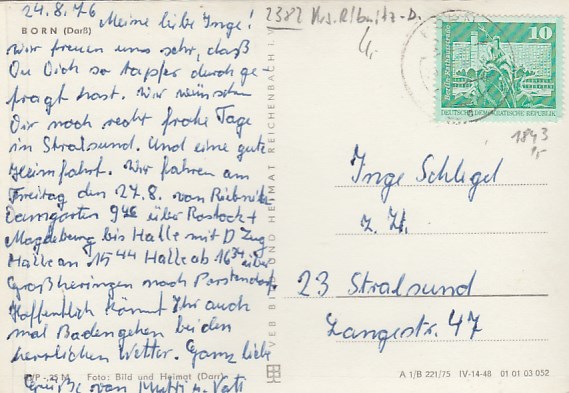 24.8.76
BORN (Darß)
Meine liebe Inge!
Wir freuen uns sehr, daß
Du Dich so tapfer durch ge-
fragt hast. Wir wünschen
Dir noch recht frohe Tage
in Stralsund. Und eine gute
Heimfahrt. Wir fahren am
Freitag den 27.8. von Ribnitz
Damgarten über Rostock +
Magdeburg bis Halle mit D Zug
Halle an 15 44 Halle ab 16 34 über
Großheringen nach Porstendorf
Hoffentlich könnt Ihr auch
mal Baden gehen bei den
herrlichen Wetter. Ganz liebe
Grüße von Mutti u. Vati
25 M Foto: Bild und Heimat (Dorr)
VEB BILD UND HEIMAT REICHENBACH I. V.
2382 Krs. Ribnitz-D.
10
DEUTSCHE DEMOKRATISCHE REPUBLIK
1843
Inge Schlegel
z. Zt.
23 Stralsund
Langestr. 47
A 1/B 221/75 IV-14-48 01 01 03 052